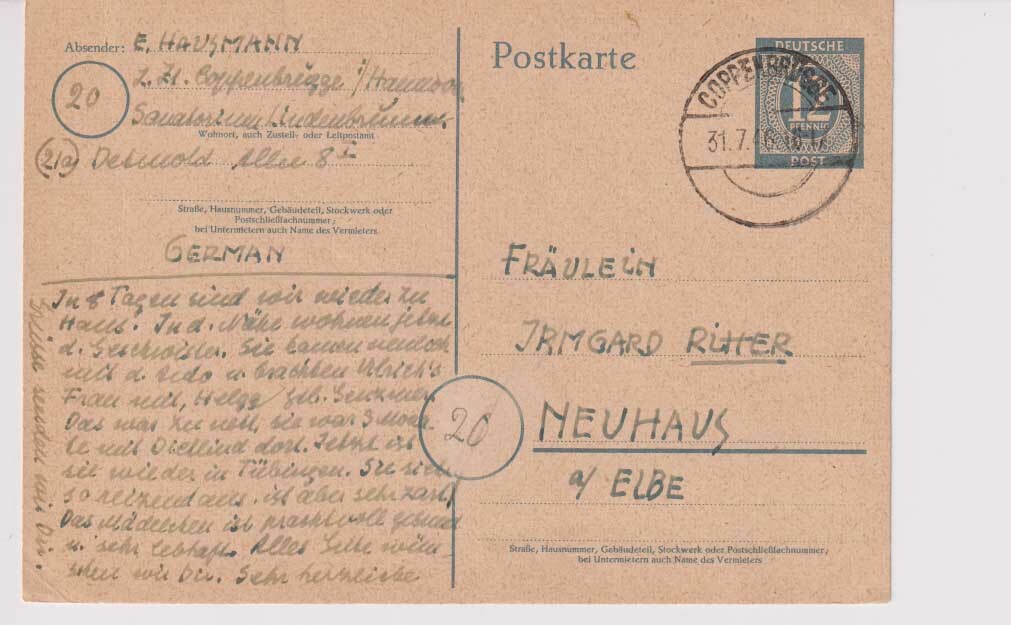 Absender: E. HAUSMANN
z. Zt. Coppenbrügge /Hannover
20
Sanatorium Lindenbrunn
Wohnort, auch Zustell- oder Leitpostamt
(21a) Detmold Allee 8
Straße, Hausnummer, Gebäudeteil, Stockwerk oder
Postschließfachnummer;
bei Untermietern auch Name des Vermieters
GERMAN
In 8 Tagen sind wir wieder zu
Haus. In d. Nähe wohnen jetzt
d. Geschwister. Sie kamen neulich
mit d. u. brachten Ulrich's
Frau mit, Helge geb.
Das war zu nett, sie war 3 Mona-
te mit Dietlind dort. Jetzt ist
sie wieder in Tübingen. Sie sieht
so reizend aus, ist aber sehr zart,
Das Mädelchen ist prachtvoll gesund
u. sehr lebhaft. Alles Liebe wün
schen wir Dir. Sehr herzliche
Grüsse senden wir Dir.
Postkarte
DEUTSCHE
12
PFENNIG
POST
COPPENBRÜGGE
31.7.46
FRÄULEIN
IRMGARD RITTER
20
NEUHAUS
a/ ELBE
Straße, Hausnummer, Gebäudeteil, Stockwerk oder Postschließfachnummer;
bei Untermietern auch Name des Vermieters